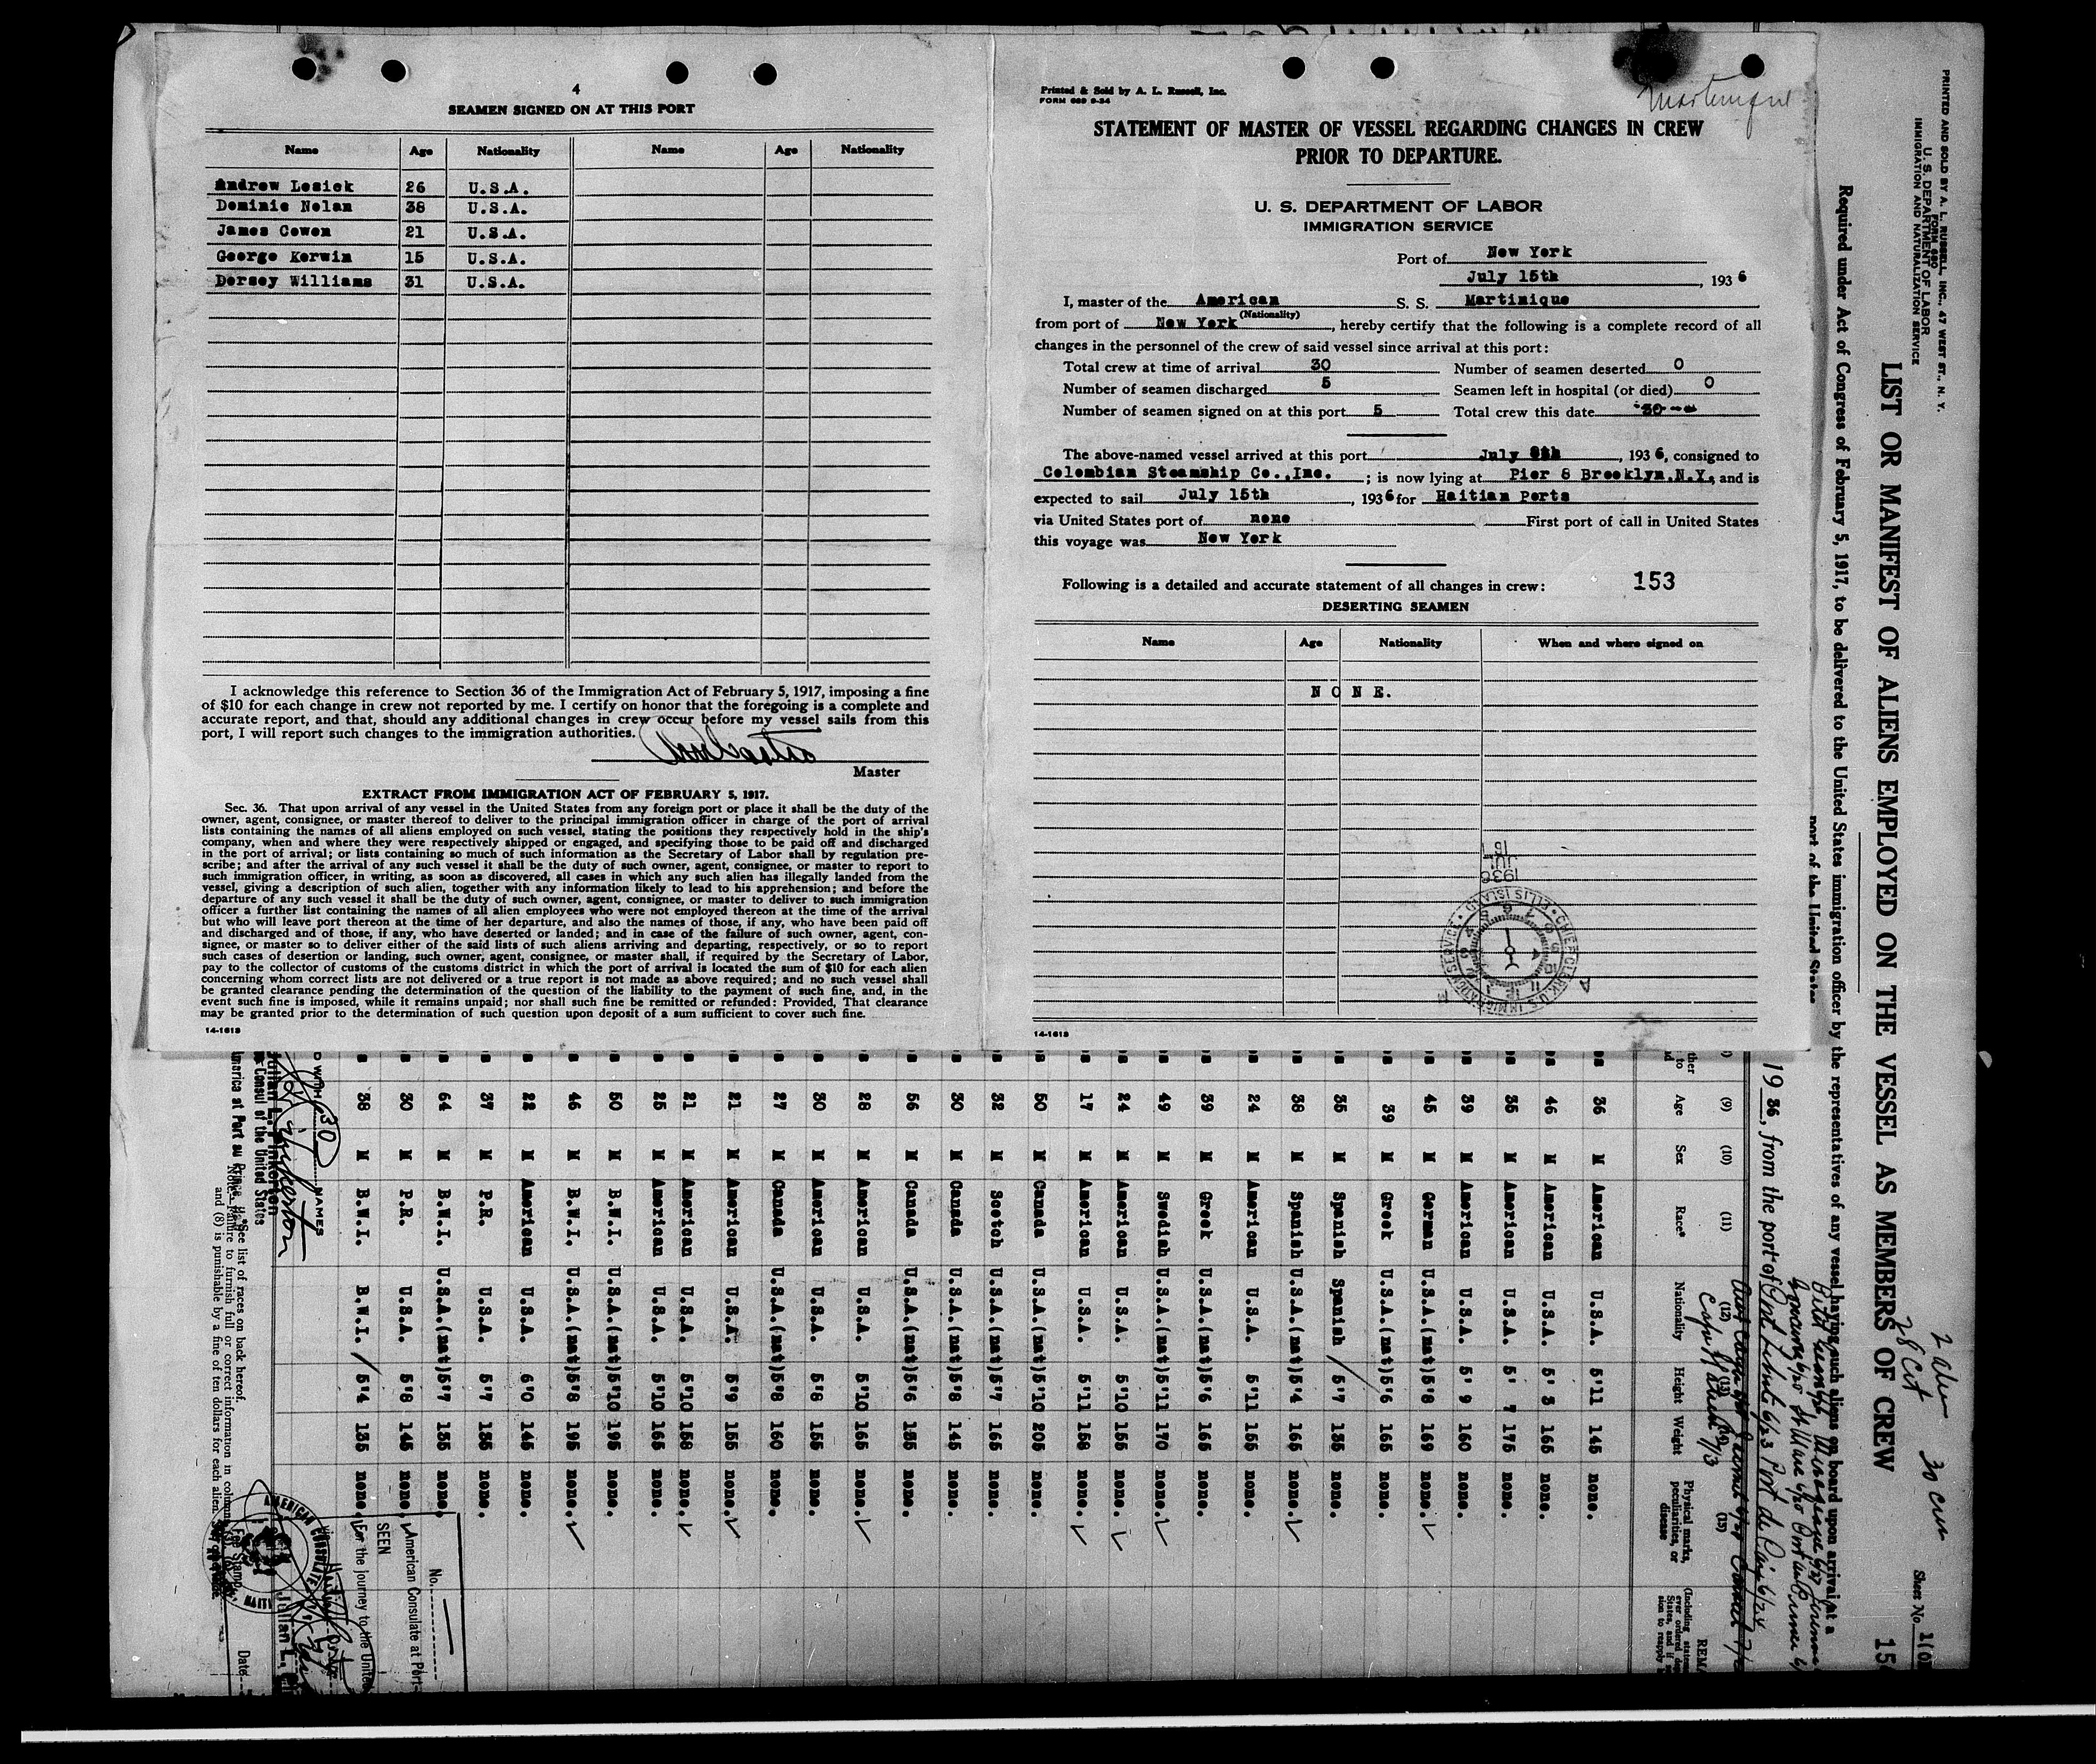 4
SEAMEN SIGNED ON AT THIS PORT
Name Age Nationality Name Age Nationality
Andrew Lesick 26 U.S.A.
Dominic Nolan 38 U.S.A.
James Cowen 21 U.S.A.
George Kerwin 15 U.S.A.
Dorsey Williams 31 U.S.A.
I acknowledge this reference to Section 36 of the Immigration Act of February 5, 1917, imposing a fine
of $10 for each change in crew not reported by me. I certify on honor that the foregoing is a complete and
accurate report, and that, should any additional changes in crew occur before my vessel sails from this
port, I will report such changes to the immigration authorities.
Master
EXTRACT FROM IMMIGRATION ACT OF FEBRUARY 5, 1917.
Sec. 36. That upon arrival of any vessel in the United States from any foreign port or place it shall be the duty of the
owner, agent, consignee, or master thereof to deliver to the principal immigration officer in charge of the port of arrival
lists containing the names of all aliens employed on such vessel, stating the positions they respectively hold in the ship's
company, when and where they were respectively shipped or engaged, and specifying those to be paid off and discharged
in the port of arrival; or lists containing so much of such information as the Secretary of Labor shall by regulation pre-
scribe; and after the arrival of any such vessel it shall be the duty of such owner, agent, consignee, or master to report to
such immigration officer, in writing, as soon as discovered, all cases in which any such alien has illegally landed from the
vessel, giving a description of such alien, together with any information likely to lead to his apprehension; and before the
departure of any such vessel it shall be the duty of such owner, agent, consignee, or master to deliver to such immigration
officer a further list containing the names of all alien employees who were not employed thereon at the time of the arrival
but who will leave port thereon at the time of her departure, and also the names of those, if any, who have been paid off
and discharged and of those, if any, who have deserted or landed; and in case of the failure of such owner, agent, con-
signee, or master so to deliver either of the said lists of such aliens arriving and departing, respectively, or so to report
such cases of desertion or landing, such owner, agent, consignee, or master shall, if required by the Secretary of Labor,
pay to the collector of customs of the customs district in which the port of arrival is located the sum of $10 for each alien
concerning whom correct lists are not delivered or a true report is not made as above required; and no such vessel shall
be granted clearance pending the determination of the question of the liability to the payment of such fine, and, in the
event such fine is imposed, while it remains unpaid; nor shall such fine be remitted or refunded: Provided, That clearance
may be granted prior to the determination of such question upon deposit of a sum sufficient to cover such fine.
14-1618
Printed & Sold by A. L. Russell, Inc.
FORM 689 9-34
Martinique
STATEMENT OF MASTER OF VESSEL REGARDING CHANGES IN CREW
PRIOR TO DEPARTURE.
U. S. DEPARTMENT OF LABOR
IMMIGRATION SERVICE
Port of New York
July 15th, 1936
I, master of the American S. S. Martinique
(Nationality)
from port of New York, hereby certify that the following is a complete record of all
changes in the personnel of the crew of said vessel since arrival at this port:
Total crew at time of arrival 30 Number of seamen deserted 0
Number of seamen discharged 5 Seamen left in hospital (or died) 0
Number of seamen signed on at this port 5 Total crew this date 30
The above-named vessel arrived at this port July 8th, 1936, consigned to
Colombian Steamship Co.,Inc. ; is now lying at Pier 8 Brooklyn.N.Y. and is
expected to sail July 15th, 1936 for Haitian Ports
via United States port of none First port of call in United States
this voyage was New York
Following is a detailed and accurate statement of all changes in crew: 153
DESERTING SEAMEN
Name Age Nationality When and where signed on
NONE.
1936
JUL
15
CHIEF CLERK U.S. IMMIGRATION SERVICE • ELLIS ISLAND •
14-1618
PRINTED AND SOLD BY A. L. RUSSELL, INC., 47 WEST ST., N. Y.
FORM 680
U. S. DEPARTMENT OF LABOR
IMMIGRATION AND NATURALIZATION SERVICE
2 alien 30 crew
28 Cit
Sheet No. 1
LIST OR MANIFEST OF ALIENS EMPLOYED ON THE VESSEL AS MEMBERS OF CREW 15
Required under Act of Congress of February 5, 1917, to be delivered to the United States immigration officer by the representatives of any vessel having such aliens on board upon arrival at a
port of the United States
1936, from the port of
(9) (10) (11) (12) (13) (15)
Age Sex Race* Nationality Height Weight Physical marks, peculiarities, or disease
36 M American U.S.A. 5'11 145 none.
46 M American U.S.A. 5' 3 165 none.
35 M American U.S.A. 5' 7 175 none.
39 M American U.S.A. 5' 9 160 none.
45 M German U.S.A.(nat) 5'8 169 none.
39 M Greek U.S.A.(nat) 5'6 165 none.
35 M Spanish Spanish 5'7 135 none.
38 M Spanish U.S.A.(nat) 5'4 165 none.
24 M American U.S.A. 5'11 155 none.
39 M Greek U.S.A.(nat) 5'6 165 none.
49 M Swedish U.S.A.(nat) 5'11 170 none.
24 M American U.S.A. 5'10 155 none.
17 M American U.S.A. 5'11 158 none.
50 M Canada U.S.A.(nat) 5'10 205 none.
32 M Scotch U.S.A.(nat) 5'7 165 none.
30 M Canada U.S.A.(nat) 5'8 145 none.
56 M Canada U.S.A.(nat) 5'6 135 none.
28 M American U.S.A. 5'10 165 none.
30 M American U.S.A. 5'8 155 none.
27 M Canada U.S.A.(nat) 5'8 160 none.
21 M American U.S.A. 5'9 155 none.
21 M American U.S.A. 5'10 158 none.
25 M American U.S.A. 5'10 165 none.
50 M B.W.I. U.S.A.(nat) 5'10 195 none.
46 M B.W.I. U.S.A.(nat) 5'8 195 none.
22 M American U.S.A. 6'0 145 none.
37 M P.R. U.S.A. 5'7 135 none.
64 M B.W.I. U.S.A.(nat) 5'7 135 none.
30 M P.R. U.S.A. 5'8 145 none.
38 M B.W.I. B.W.I. 5'4 135 none.
WITH 30 NAMES
Consul of the United States
America at Port au Prince
*See list of races on back hereof.
Note.—Failure to furnish full or correct information in columns
and (8) is punishable by a fine of ten dollars for each alien
No.
American Consulate at Port-
SEEN
For the journey to the United
Date
AMERICAN CONSULATE
HAITI
Fee Stamp